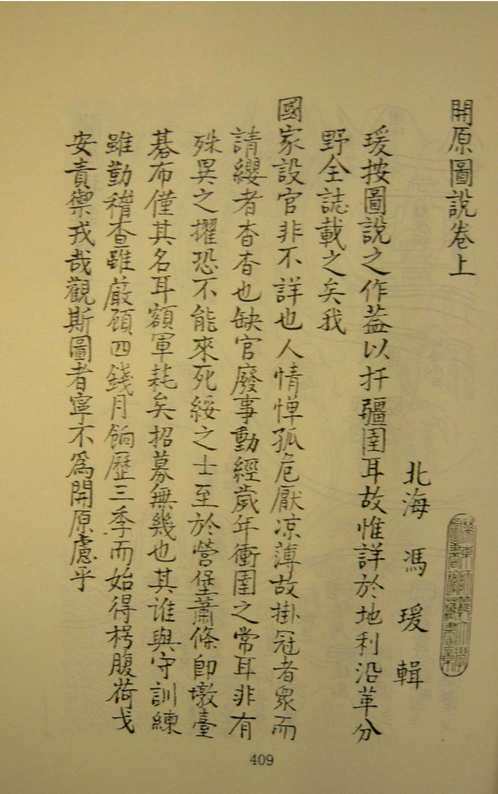 開原圖說卷上
北海 馮瑗 輯
瑗按圖說之作葢以扞疆圉耳故惟詳於地利沿革分
野全誌載之矣我
國家設官非不詳也人情憚孤危厭凉薄故掛冠者眾而
請纓者杳杳也缺官廢事動經歲年衝圉之常耳非有
殊異之擢恐不能來死綏之士至於營堡蕭條卽墩臺
碁布僅其名耳額軍耗矣招募無幾也其誰與守訓練
雖勤稽查雖嚴顧四錢月餉歷三季而始得枵腹荷戈
安責禦戎哉觀斯圖者寧不爲開原慮乎
409